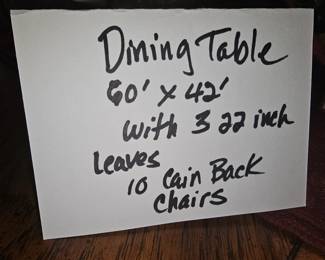 Dining Table
60' x 42'
with 3 22 inch
Leaves
10 Cain Back
Chairs